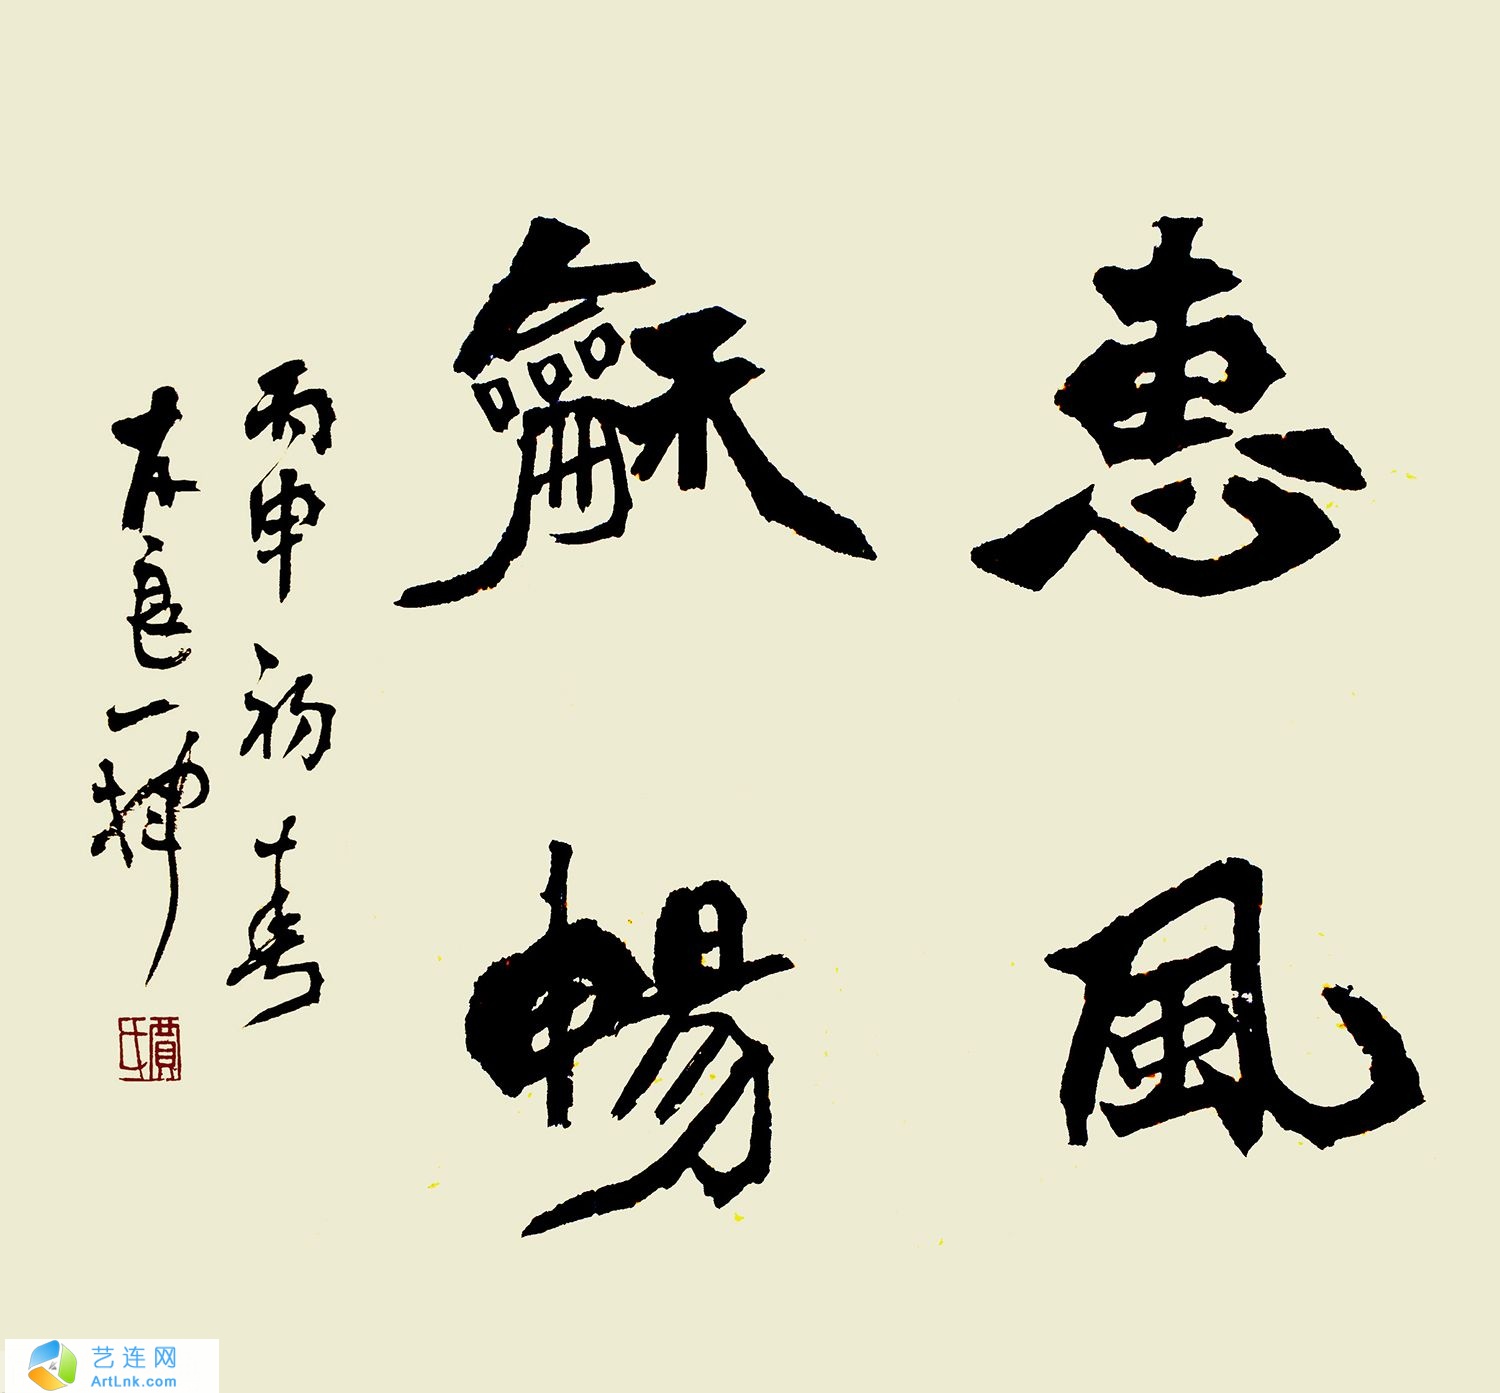 惠風
龢暢
丙申初春
友良一挥
賈氏
艺连网
ArtLnk.com